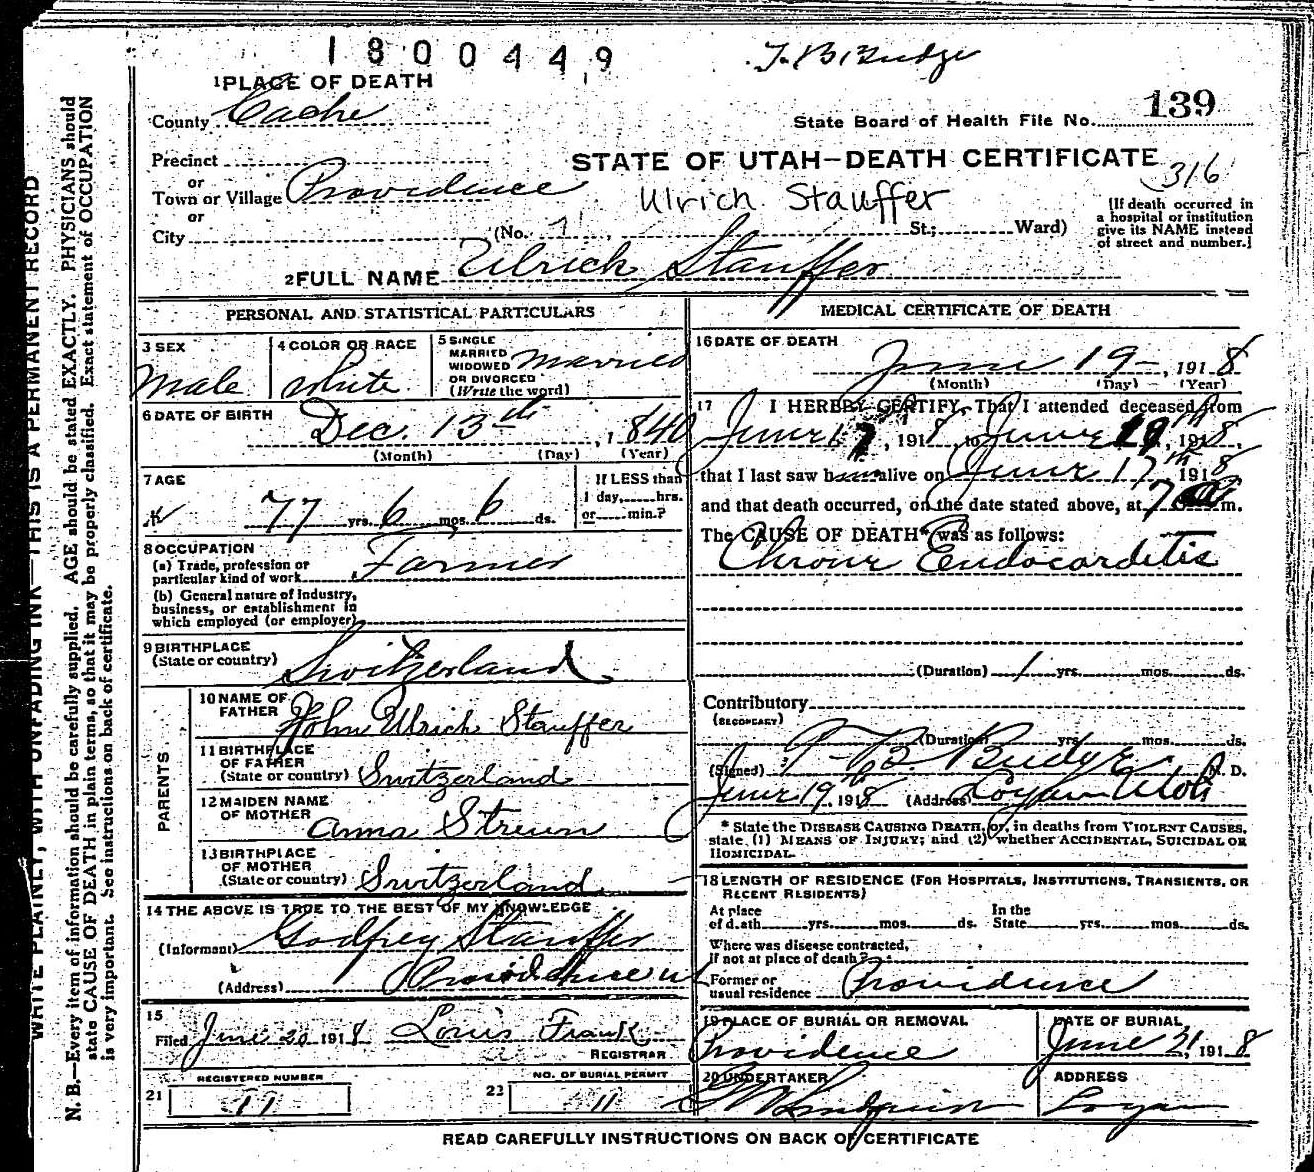 1800449
T. B. Budge
1 PLACE OF DEATH
County Cache
State Board of Health File No. 139
Precinct
or
Town or Village Providence
or
City (No. St.; Ward)
STATE OF UTAH—DEATH CERTIFICATE
316
Ulrich Stauffer
[If death occurred in
a hospital or institution
give its NAME instead
of street and number.]
2 FULL NAME Ulrich Stauffer
PERSONAL AND STATISTICAL PARTICULARS
3 SEX
Male
4 COLOR OR RACE
White
5 SINGLE
MARRIED
WIDOWED
OR DIVORCED
(Write the word)
Married
6 DATE OF BIRTH
Dec. 13th, 1840
(Month) (Day) (Year)
7 AGE
77 yrs. 6 mos. 6 ds.
If LESS than
1 day,......hrs.
or......min.?
8 OCCUPATION
(a) Trade, profession or
particular kind of work Farmer
(b) General nature of industry,
business, or establishment in
which employed (or employer)
9 BIRTHPLACE
(State or country) Switzerland
PARENTS
10 NAME OF
FATHER John Ulrich Stauffer
11 BIRTHPLACE
OF FATHER
(State or country) Switzerland
12 MAIDEN NAME
OF MOTHER Anna Streun
13 BIRTHPLACE
OF MOTHER
(State or country) Switzerland
14 THE ABOVE IS TRUE TO THE BEST OF MY KNOWLEDGE
(Informant) Godfrey Stauffer
(Address) Providence U
15
Filed June 20 1918 Louis Frank
REGISTRAR
REGISTERED NUMBER
21 11
NO. OF BURIAL PERMIT
22 11
MEDICAL CERTIFICATE OF DEATH
16 DATE OF DEATH
June 19 — , 1918
(Month) (Day) (Year)
17 I HEREBY CERTIFY, That I attended deceased from
June 17, 1918, to June 19, 1918,
that I last saw h alive on June 17th 1918
and that death occurred, on the date stated above, at 7 m.
The CAUSE OF DEATH* was as follows:
Chronic Endocarditis
(Duration) 1 yrs. mos. ds.
Contributory
(SECONDARY)
(Duration) yrs. mos. ds.
(Signed) T B Budge M. D.
June 19th 1918 (Address) Logan Utah
* State the DISEASE CAUSING DEATH, or, in deaths from VIOLENT CAUSES,
state (1) MEANS OF INJURY; and (2) whether ACCIDENTAL, SUICIDAL OR
HOMICIDAL.
18 LENGTH OF RESIDENCE (FOR HOSPITALS, INSTITUTIONS, TRANSIENTS, OR
RECENT RESIDENTS)
At place In the
of death yrs. mos. ds. State yrs. mos. ds.
Where was disease contracted,
if not at place of death?
Former or
usual residence Providence
19 PLACE OF BURIAL OR REMOVAL
Providence
DATE OF BURIAL
June 21, 1918
20 UNDERTAKER
Lindquist
ADDRESS
Logan
READ CAREFULLY INSTRUCTIONS ON BACK OF CERTIFICATE
WRITE PLAINLY, WITH UNFADING INK—THIS IS A PERMANENT RECORD
N. B.—Every item of information should be carefully supplied. AGE should be stated EXACTLY. PHYSICIANS should
state CAUSE OF DEATH in plain terms, so that it may be properly classified. Exact statement of OCCUPATION
is very important. See instructions on back of certificate.